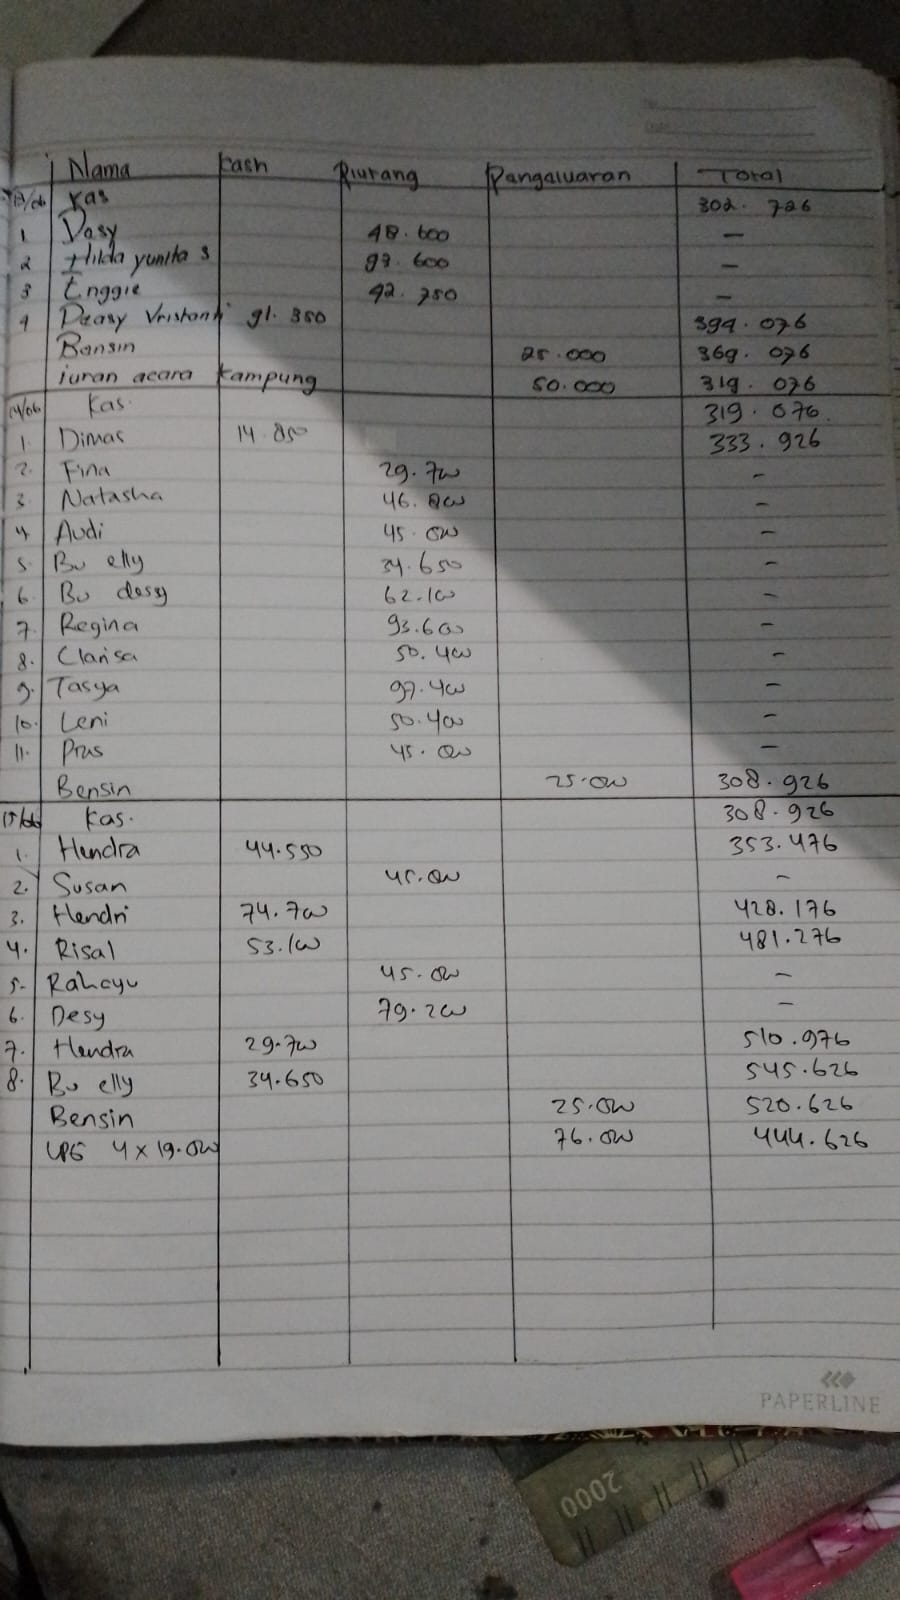 Nama Kash Piutang Pangaluaran Total
13/06 Kas 302. 726
1 Dasy 48.600 -
2 Hilda yunita s 97.600 -
3 Enggie 42. 750 -
4 Deasy Vristanti 91. 350 394. 076
Bansin 25.000 369. 076
iuran acara kampung 50.000 319. 076
14/06 Kas. 319. 076.
1. Dimas 14.850 333. 926
2. Fina 29.700 -
3. Natasha 46.800 -
4 Audi 45.000 -
5. Bu elly 34.650 -
6. Bu dessy 62.100 -
7. Regina 93.600 -
8. Clarisa 50.400 -
9. Tasya 97.400 -
10. Leni 50.400 -
11. Pras 45.000 -
Bensin 25.000 308.926
15/06 Kas. 308.926
1. Hendra 44.550 353.476
2. Susan 45.000 -
3. Hendri 74.700 428.176
4. Risal 53.100 481.276
5. Rahayu 45.000 -
6. Desy 79.200 -
7. Hendra 29.700 510.976
8. Bu elly 34.650 545.626
Bensin 25.000 520.626
LPG 4 x 19.000 76.000 444.626
PAPERLINE
2000